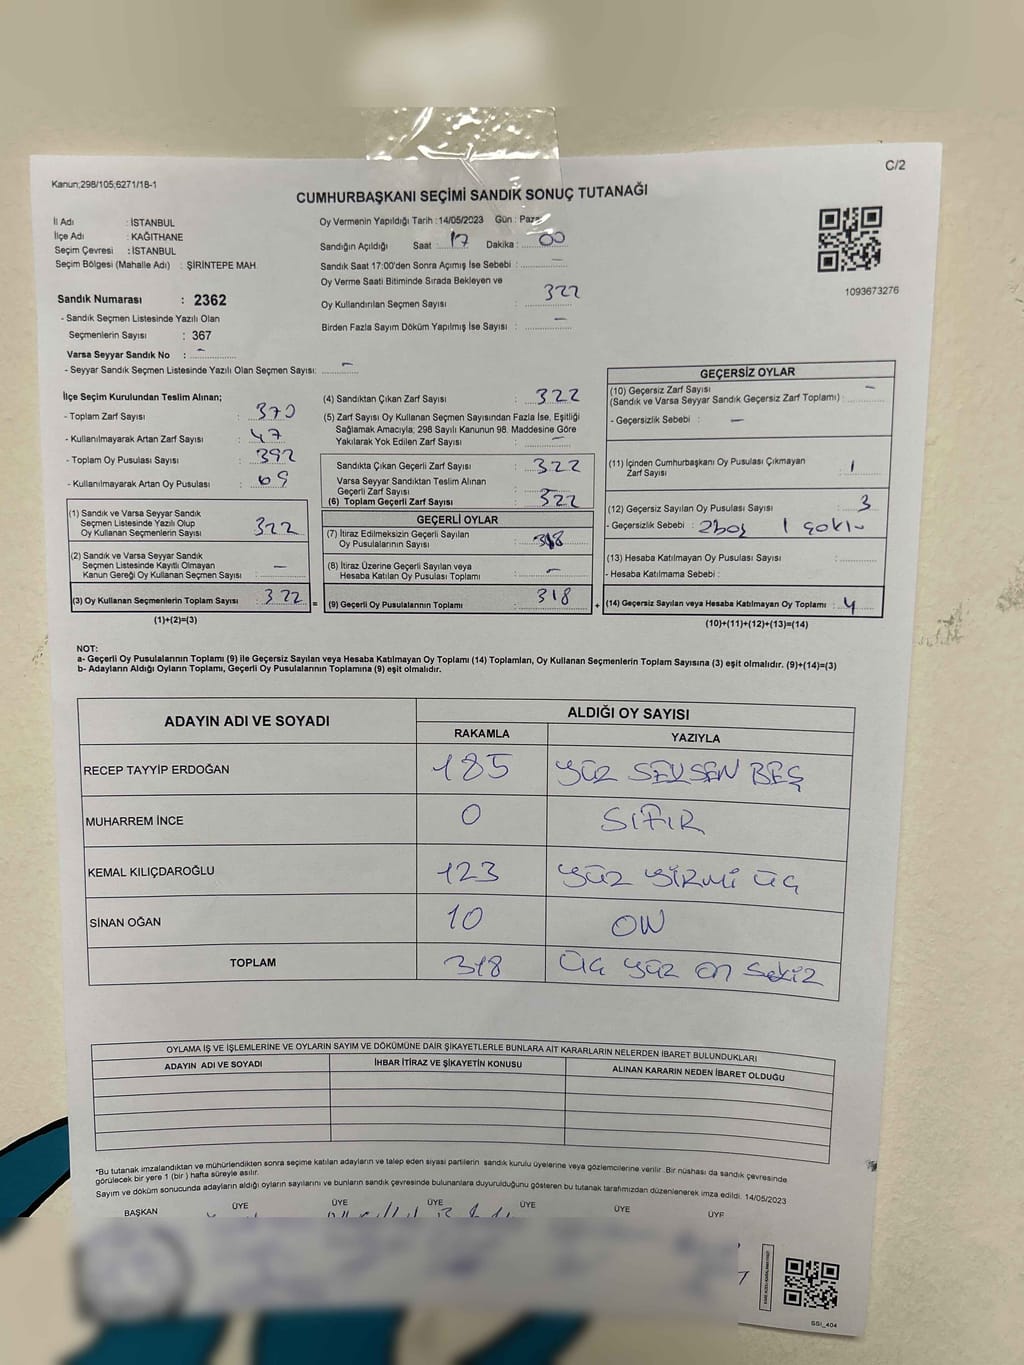 C/2
Kanun;298/105;6271/18-1
CUMHURBAŞKANI SEÇİMİ SANDIK SONUÇ TUTANAĞI
İl Adı : İSTANBUL
İlçe Adı : KAĞITHANE
Seçim Çevresi : İSTANBUL
Seçim Bölgesi (Mahalle Adı) : ŞİRİNTEPE MAH
Oy Vermenin Yapıldığı Tarih :14/05/2023 Gün : Paza
Sandığın Açıldığı Saat : 17 Dakika : 00
Sandık Saat 17:00'den Sonra Açımış İse Sebebi : -
Oy Verme Saati Bitiminde Sırada Bekleyen ve
Oy Kullandırılan Seçmen Sayısı : 322
Birden Fazla Sayım Döküm Yapılmış İse Sayısı : -
1093673276
Sandık Numarası : 2362
- Sandık Seçmen Listesinde Yazılı Olan
Seçmenlerin Sayısı : 367
Varsa Seyyar Sandık No : -
- Seyyar Sandık Seçmen Listesinde Yazılı Olan Seçmen Sayısı: -
İlçe Seçim Kurulundan Teslim Alınan;
- Toplam Zarf Sayısı : 370
- Kullanılmayarak Artan Zarf Sayısı : 47
- Toplam Oy Pusulası Sayısı : 392
- Kullanılmayarak Artan Oy Pusulası : 69
(1) Sandık ve Varsa Seyyar Sandık
Seçmen Listesinde Yazılı Olup
Oy Kullanan Seçmenlerin Sayısı : 322
(2) Sandık ve Varsa Seyyar Sandık
Seçmen Listesinde Kayıtlı Olmayan
Kanun Gereği Oy Kullanan Seçmen Sayısı : -
(3) Oy Kullanan Seçmenlerin Toplam Sayısı : 322
(1)+(2)=(3)
(4) Sandıktan Çıkan Zarf Sayısı : 322
(5) Zarf Sayısı Oy Kullanan Seçmen Sayısından Fazla İse, Eşitliği
Sağlamak Amacıyla; 298 Sayılı Kanunun 98. Maddesine Göre
Yakılarak Yok Edilen Zarf Sayısı : -
Sandıkta Çıkan Geçerli Zarf Sayısı : 322
Varsa Seyyar Sandıktan Teslim Alınan
Geçerli Zarf Sayısı : -
(6) Toplam Geçerli Zarf Sayısı : 322
GEÇERLİ OYLAR
(7) İtiraz Edilmeksizin Geçerli Sayılan
Oy Pusulalarının Sayısı : 318
(8) İtiraz Üzerine Geçerli Sayılan veya
Hesaba Katılan Oy Pusulası Toplamı : -
= (9) Geçerli Oy Pusulalarının Toplamı : 318
GEÇERSİZ OYLAR
(10) Geçersiz Zarf Sayısı
(Sandık ve Varsa Seyyar Sandık Geçersiz Zarf Toplamı) : -
- Geçersizlik Sebebi : -
(11) İçinden Cumhurbaşkanı Oy Pusulası Çıkmayan
Zarf Sayısı : 1
(12) Geçersiz Sayılan Oy Pusulası Sayısı : 3
- Geçersizlik Sebebi : 2boş 1
(13) Hesaba Katılmayan Oy Pusulası Sayısı :
- Hesaba Katılmama Sebebi :
+ (14) Geçersiz Sayılan veya Hesaba Katılmayan Oy Toplamı : 4
(10)+(11)+(12)+(13)=(14)
NOT:
a- Geçerli Oy Pusulalarının Toplamı (9) ile Geçersiz Sayılan veya Hesaba Katılmayan Oy Toplamı (14) Toplamları, Oy Kullanan Seçmenlerin Toplam Sayısına (3) eşit olmalıdır. (9)+(14)=(3)
b- Adayların Aldığı Oyların Toplamı, Geçerli Oy Pusulalarının Toplamına (9) eşit olmalıdır.
ADAYIN ADI VE SOYADI ALDIĞI OY SAYISI
RAKAMLA YAZIYLA
RECEP TAYYİP ERDOĞAN 185 YÜZ SEKSEN BEŞ
MUHARREM İNCE 0 SIFIR
KEMAL KILIÇDAROĞLU 123 YÜZ YİRMİ ÜÇ
SİNAN OĞAN 10 ON
TOPLAM 318 ÜÇ YÜZ ON SEKİZ
OYLAMA İŞ VE İŞLEMLERİNE VE OYLARIN SAYIM VE DÖKÜMÜNE DAİR ŞİKAYETLERLE BUNLARA AİT KARARLARIN NELERDEN İBARET BULUNDUKLARI
ADAYIN ADI VE SOYADI İHBAR İTİRAZ VE ŞİKAYETİN KONUSU ALINAN KARARIN NEDEN İBARET OLDUĞU
*Bu tutanak imzalandıktan ve mühürlendikten sonra seçime katılan adayların ve talep eden siyasi partilerin sandık kurulu üyelerine veya gözlemcilerine verilir .Bir nüshası da sandık çevresinde
görülecek bir yere 1 (bir ) hafta süreyle asılır.
Sayım ve döküm sonucunda adayların aldığı oyların sayılarını ve bunların sandık çevresinde bulunanlara duyurulduğunu gösteren bu tutanak tarafımızdan düzenlenerek imza edildi. 14/05/2023
BAŞKAN ÜYE ÜYE ÜYE ÜYE ÜYE ÜYE
SSI_404